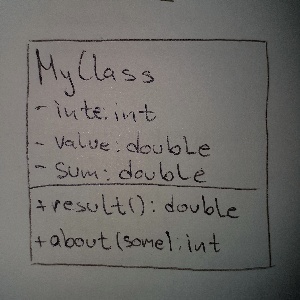 MyClass
- inte:int
- value:double
- sum:double
+result():double
+about(some):int